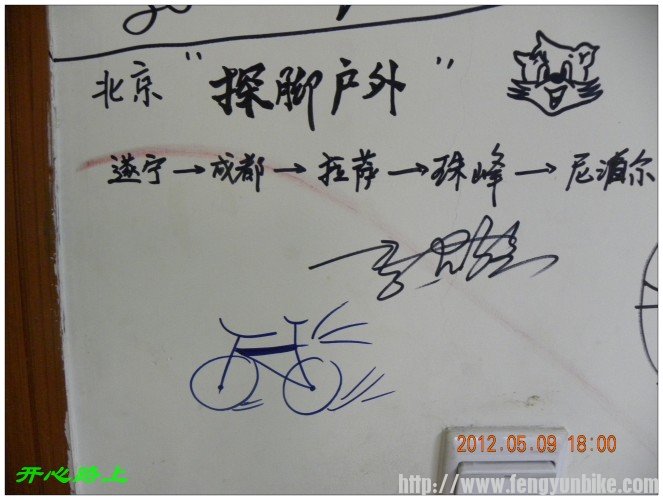 北京 "探脚户外"
遂宁→成都→拉萨→珠峰→尼泊尔
2012.05.09 18:00
开心路上
http://www.fengyunbike.com